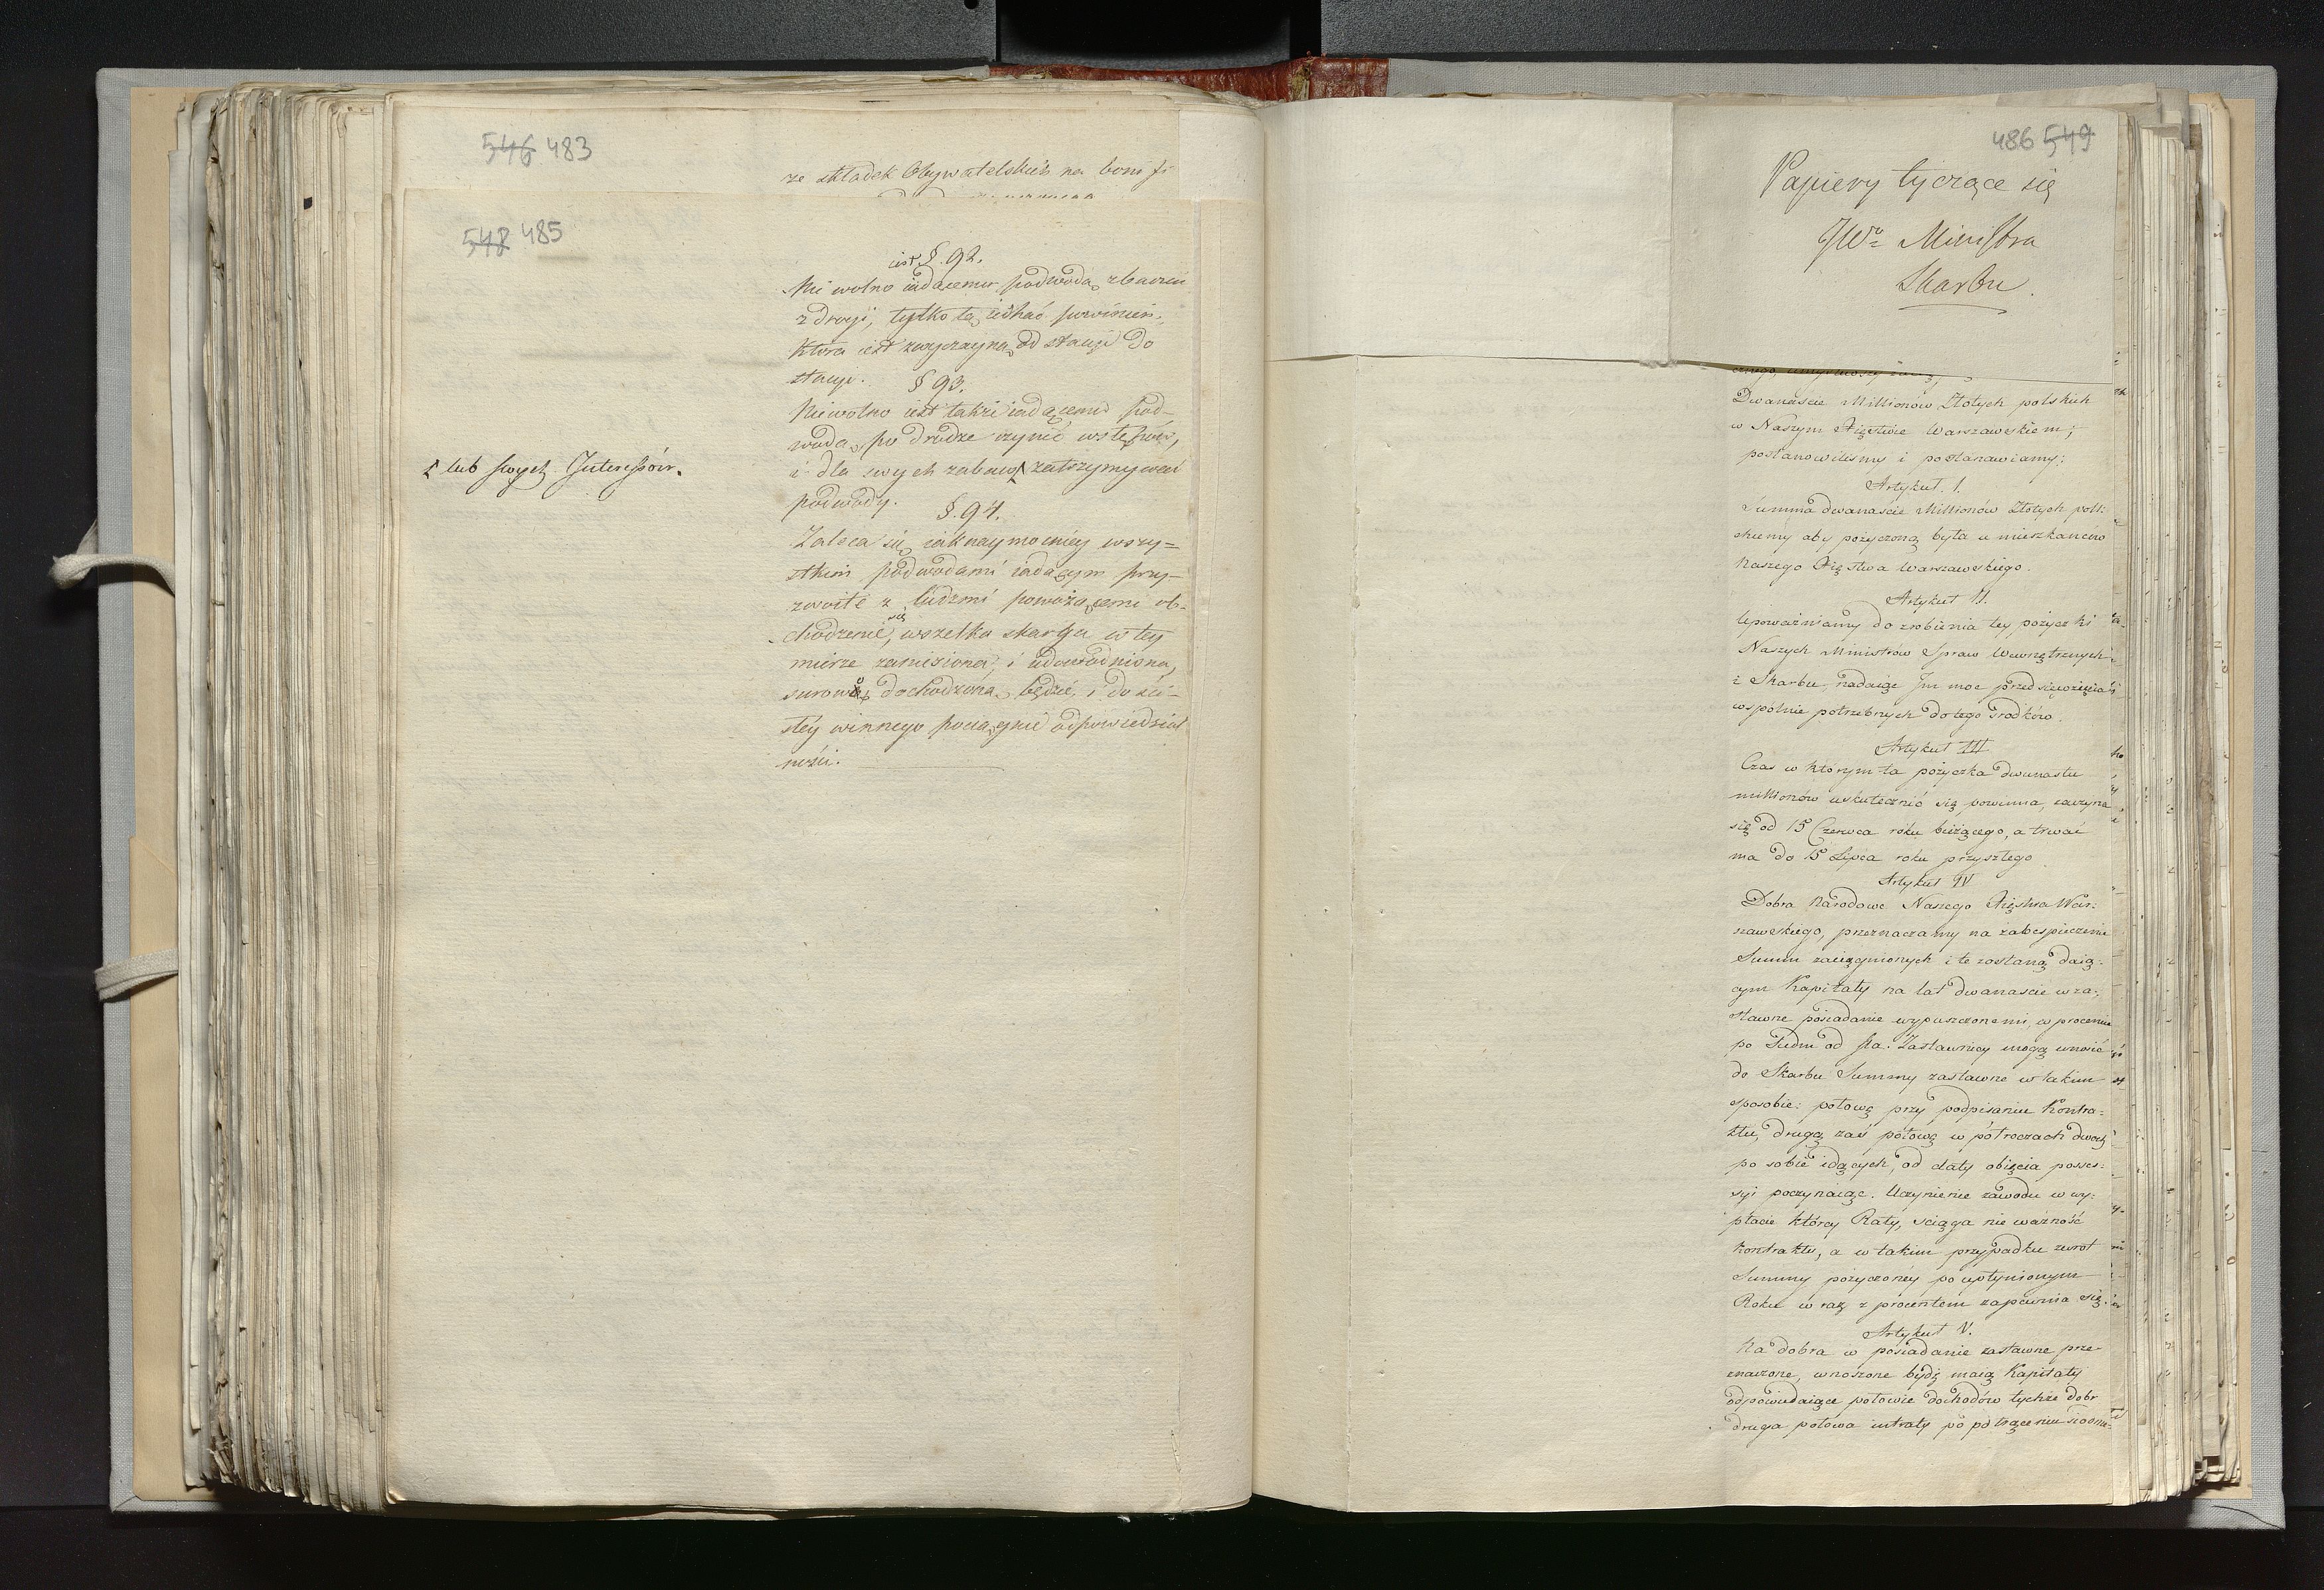 546 483
ze składek Obywatelskich na boni fi
548 485
§. 92.
Nie wolno iadącemu podwodą zbaczać
z drogi, tylko tą iechać powinien,
która iest zwyczayną od stacyi do
stacyi.
§ 93.
Nie wolno iest także iadącemu pod-
wodą, po drodze czynić wstępów,
i dla swych zabaw zatrzymywać
podwody.
lub swych Interessów.
§. 94.
Zaleca się iaknaymocniey wszy=
stkim podwodami iadącym przy-
zwoite z ludźmi powożącemi ob-
chodzenie się, wszelka skarga w tey
mierze zaniesiona, i udowodniona,
surowo dochodzoną będzie, i do ści-
słéy winnego pociągnie odpowiedzial
ności.
486 549
Papiery tyczące się
JWo Ministra
Skarbu.
Dwanaście Millionów Złotych polskich
w Naszym Xięstwie Warszawskiem;
postanowiliśmy i postanawiamy:
Artykuł. I.
Summa dwanaście Millionów Złotych pols:
chcemy aby pożyczoną była u mieszkańców
Naszego Xięstwa Warszawskiego.
Artykuł II.
Upoważniamy do zrobienia tey pożyczki
Naszych Ministrów Spraw Wewnętrznych
i Skarbu, nadaiąc Im moc przedsięwzięcia
wspólnie potrzebnych do tego srodków.
Artykuł III
Czas w którym ta pożyczka dwunastu
millionów uskutecznić się powinna, zaczyna
się od 15 Czerwca roku bieżącego, a trwać
ma do 15 Lipca roku przyszłego
Artykuł IV
Dobra Narodowe Naszego Xięstwa War:
szawskiego, przeznaczamy na zabespieczenie
Summ zaciągnionych i te zostaną daią:
cym Kapitały na lat dwanaście w za:
stawne posiadanie wypuszczonemi, w procencie
po Siedm od sta. Zastawnicy mogą wnosić
do Skarbu Summy zastawne w takim
sposobie: połowę przy podpisaniu Kontra:
ktu, drugą zaś połowę w półroczach dwóch
po sobie idących, od daty obięcia posses:
syi poczynaiąc. Uczynienie zawodu w wy:
płacie którey Raty, sciąga nie ważność
Kontraktu, a w takim przypadku zwrot
Summy pożyczoney po upłynionym
Roku wraz z procentem zapewnia się.
Artykuł V.
Na dobra w posiadanie zastawne prze-
znaczone, wnoszone bydź maią Kapitały
odpowiadaiące połowie dochodów tychże dobr
druga połowa intraty po potrąceniu